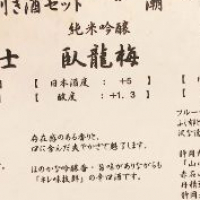 利き酒セット
潮
純米吟醸
士 臥龍梅
】 【 日本酒度 : +5 】
】 【 酸度 : +1.3 】 【
存在感のある香りと、
口に含んだ爽やかさで魅了します。
ほのかな吟醸香・旨味がありながらも
「キレ味抜群」の辛口酒です。
フルー
静岡
「山
静岡